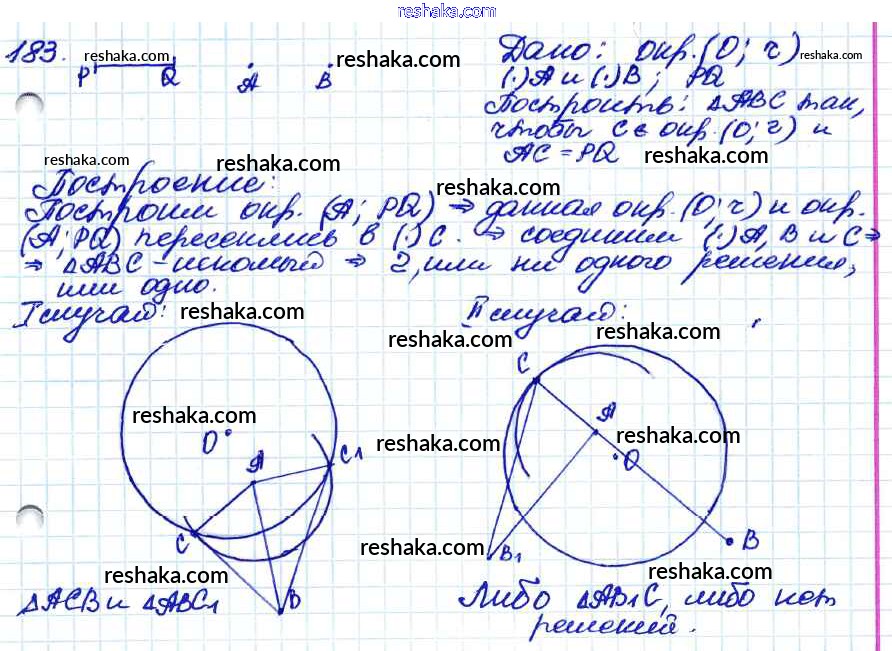 reshaka.com
183. reshaka.com reshaka.com Дано: окр.(O; r) reshaka.com
P Q A B (·)A и (·)B; PQ
Построить: △ABC так,
чтобы C ∈ окр.(O; r) и
reshaka.com reshaka.com AC = PQ reshaka.com
Построение: reshaka.com
Построим окр. (A; PQ) ⇒ данная окр. (O; r) и окр.
(A; PQ) пересеклись в (·)C. ⇒ соединим (·)A, B и C ⇒
⇒ △ABC - искомый ⇒ 2, или ни одного решения,
или одно.
I случай: reshaka.com II случай:
reshaka.com reshaka.com
C
reshaka.com A reshaka.com
O reshaka.com
A C1 O
C reshaka.com B1 B
reshaka.com reshaka.com
B
△ACB и △ABC1 Либо △AB1C, либо нет
решений.